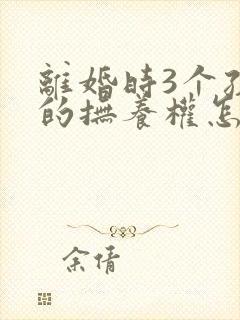 離婚時3个孩
的撫養權怎
余倩